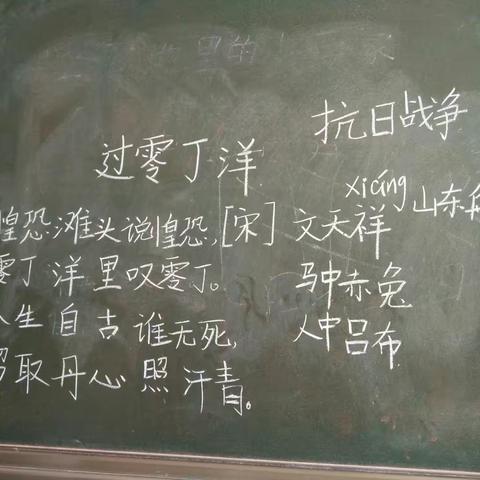 里的
抗日战争
过零丁洋
xiáng 山东
惶恐滩头说惶恐,[宋] 文天祥
零丁洋里叹零丁。
马中赤兔
人生自古谁无死,
人中吕布
留取丹心照汗青。